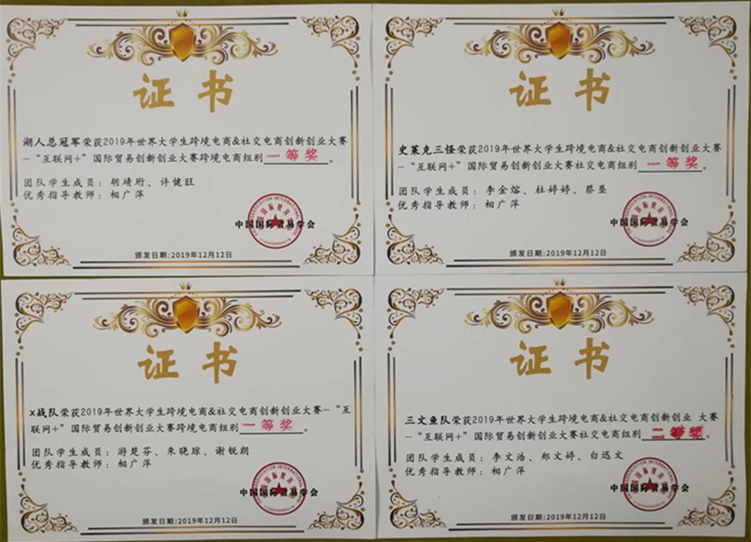 证书
湖人总冠军荣获2019年世界大学生跨境电商&社交电商创新创业大赛
—“互联网+”国际贸易创新创业大赛跨境电商组别 一等奖 。
团队学生成员：胡靖珩、许健旺
优秀指导教师：相广萍
中国国际贸易学会
颁发日期:2019年12月12日
证书
史莱克三怪荣获2019年世界大学生跨境电商&社交电商创新创业大赛
—“互联网+”国际贸易创新创业大赛社交电商组别 一等奖 。
团队学生成员：李金熔、杜婷婷、蔡显
优秀指导教师：相广萍
中国国际贸易学会
颁发日期:2019年12月12日
证书
X战队荣获2019年世界大学生跨境电商&社交电商创新创业大赛—“互
联网+”国际贸易创新创业大赛跨境电商组别 一等奖 。
团队学生成员：游楚芬、朱晓琼、谢锐朗
优秀指导教师：相广萍
中国国际贸易学会
颁发日期:2019年12月12日
证书
三文鱼队荣获2019年世界大学生跨境电商&社交电商创新创业 大赛
—“互联网+”国际贸易创新创业大赛社交电商组别 二等奖 。
团队学生成员：李文浩、郑文婷、白迅文
优秀指导教师：相广萍
中国国际贸易学会
颁发日期:2019年12月12日